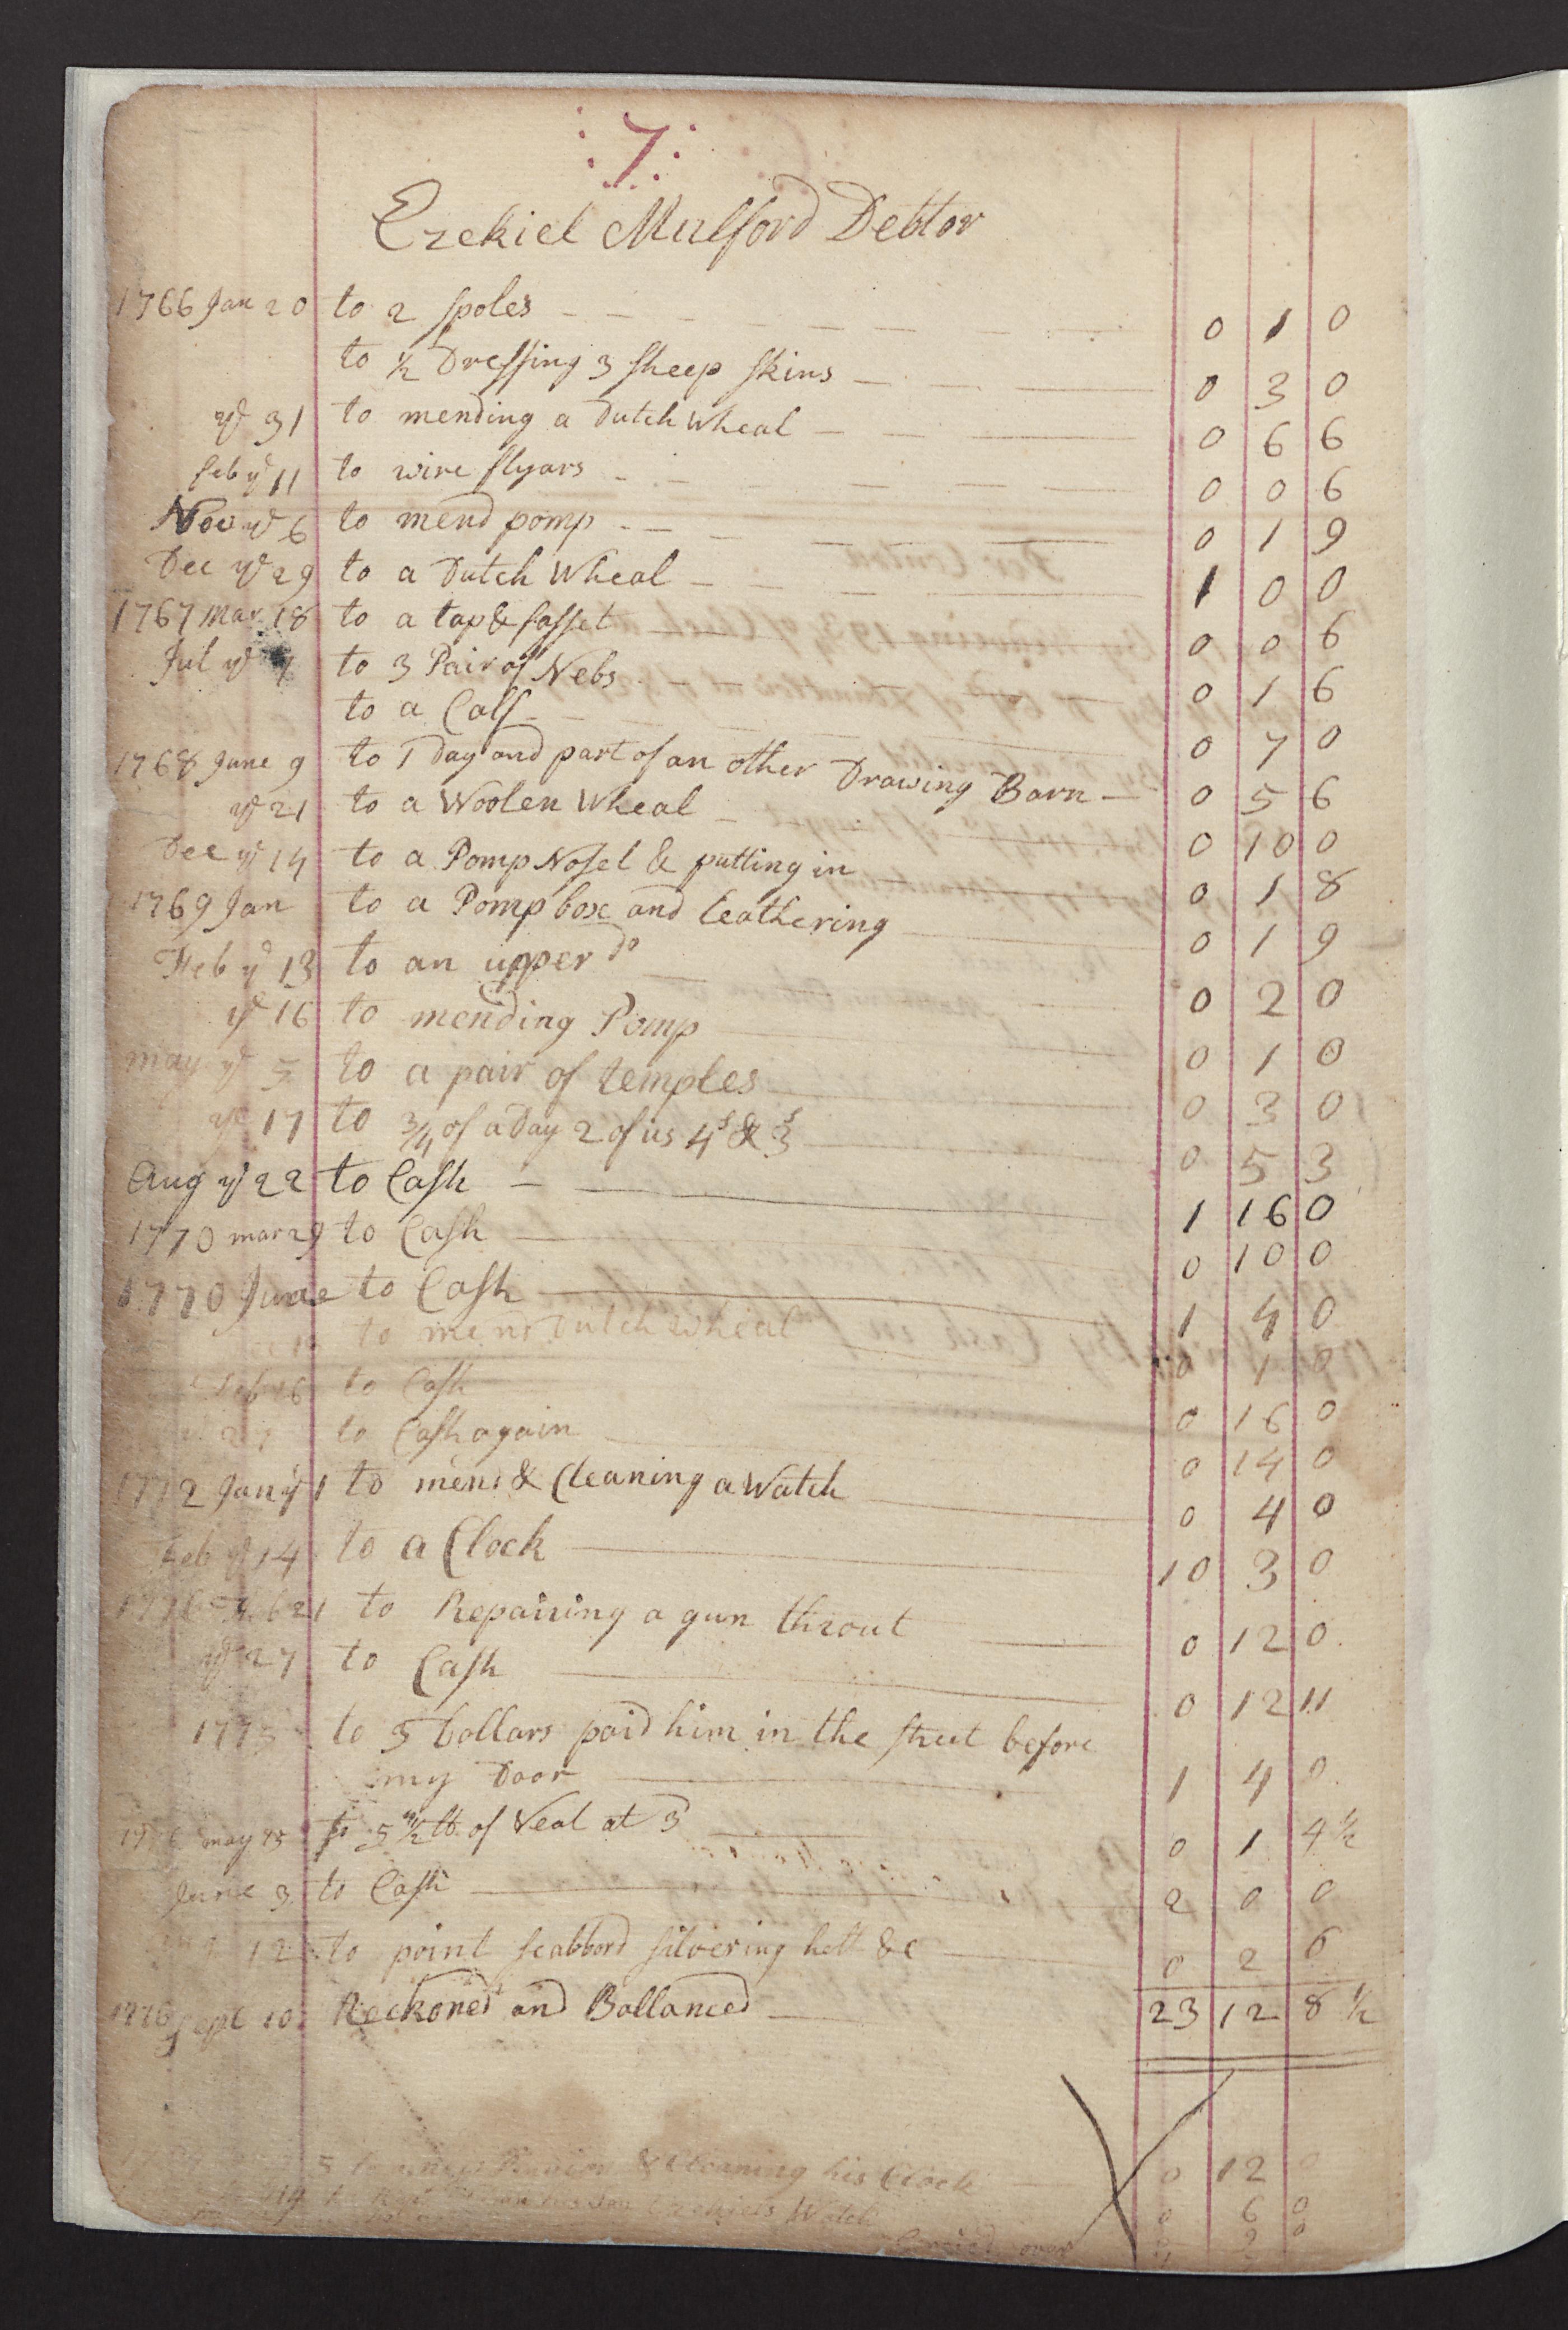 :7:
Ezekiel Mulford Debtor
1766 Jan 20 to 2 spoles 0 1 0
to ½ Dressing 3 sheep skins 0 3 0
ye 31 to mending a Dutch Wheal 0 6 6
feb ye 11 to wire flyars 0 0 6
Nov ye 6 to mend pomp 0 1 9
Dec ye 29 to a Dutch Wheal 1 0 0
1767 Mar 18 to a tap & fasset 0 0 6
Jul ye to 3 Pair of Nebs 0 1 6
to a Calf 0 7 0
1768 June 9 to 1 Day and part of an other Drawing Barn 0 5 6
ye 21 to a Woolen Wheal 0 10 0
Dec ye 14 to a Pomp Nosel & putting in 0 1 8
1769 Jan to a Pomp box and leathering 0 1 9
Feb ye 13 to an upper Do 0 2 0
ye 16 to mending Pomp 0 1 0
may ye 5 to a pair of temples 0 3 0
ye 17 to ¾ of a Day 2 of us 4s & 3s 0 5 3
Aug ye 22 to Cash 1 16 0
1770 mar 29 to Cash 0 10 0
1770 June to Cash 1 4 0
to mend Dutch wheal 0 1 0
Feb 16 to Cash 0 16 0
to Cash again 0 14 0
1772 Jan ye 1 to mend & Cleaning a Watch 0 4 0
Feb ye 14 to a Clock 10 3 0
Feb 21 to Repairing a gun throut 0 12 0
ye 27 to Cash 0 12 11
1775 to 3 Dollars paid him in the street before
my Door 1 4 0
may to 5 ½ lb of Veal at 3 0 1 4 ½
June 3 to Cash 2 0 0
12 to point scabbord silvering helt &c 0 2 6
1776 Sept 10 Reckoned and Ballanced 23 12 8 ½
& Cleaning his Clock 0 12 0
Ezekiels Watch 0 6 0
over